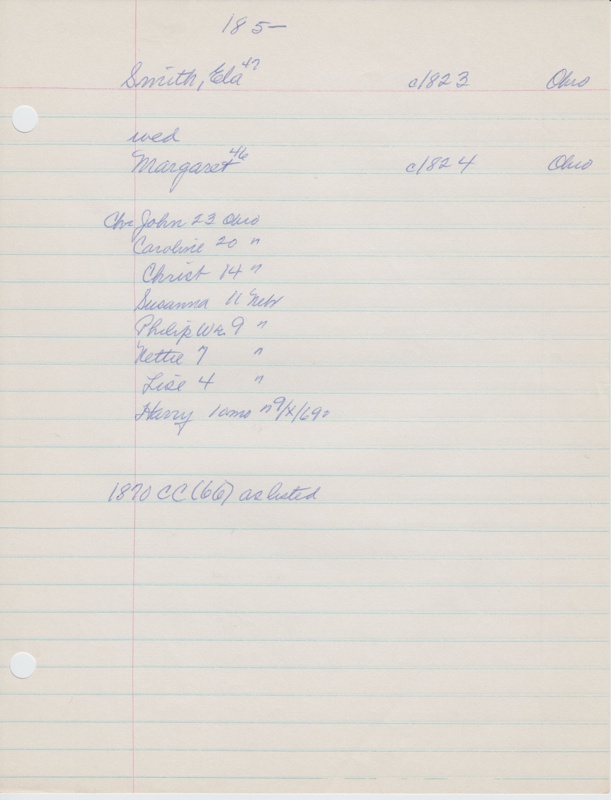 185—
Smith, Ela 47 c/823 Ohio
wed
Margaret 46 c/824 Ohio
Ch- John 23 Ohio
Caroline 20 "
Christ 14 "
Susanna 11 Nebr
Philip Wm 9 "
Nettie 7 "
Lise 4 "
Harry 10mo " 9/X/69"
1870 CC (66) as listed